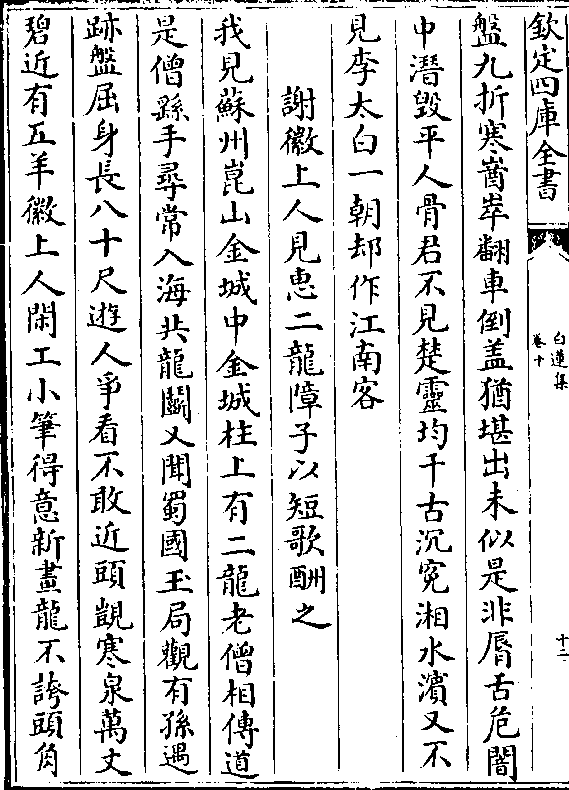 欽定四庫全書
白蓮集
卷十
十二
盤九折寒崷崒翻車倒盖猶堪出未似是非脣舌危闇
中潛毀平人骨君不見楚靈均千古沉寃湘水濱又不
見李太白一朝却作江南客
謝徽上人見惠二龍障子以短歌酬之
我見蘇州崑山金城中金城柱上有二龍老僧相傳道
是僧繇手尋常入海共龍鬭又聞蜀國玉局觀有孫遇
跡盤屈身長八十尺遊人爭看不敢近頭覷寒泉萬丈
碧近有五羊徽上人閑工小筆得意新畫龍不誇頭角